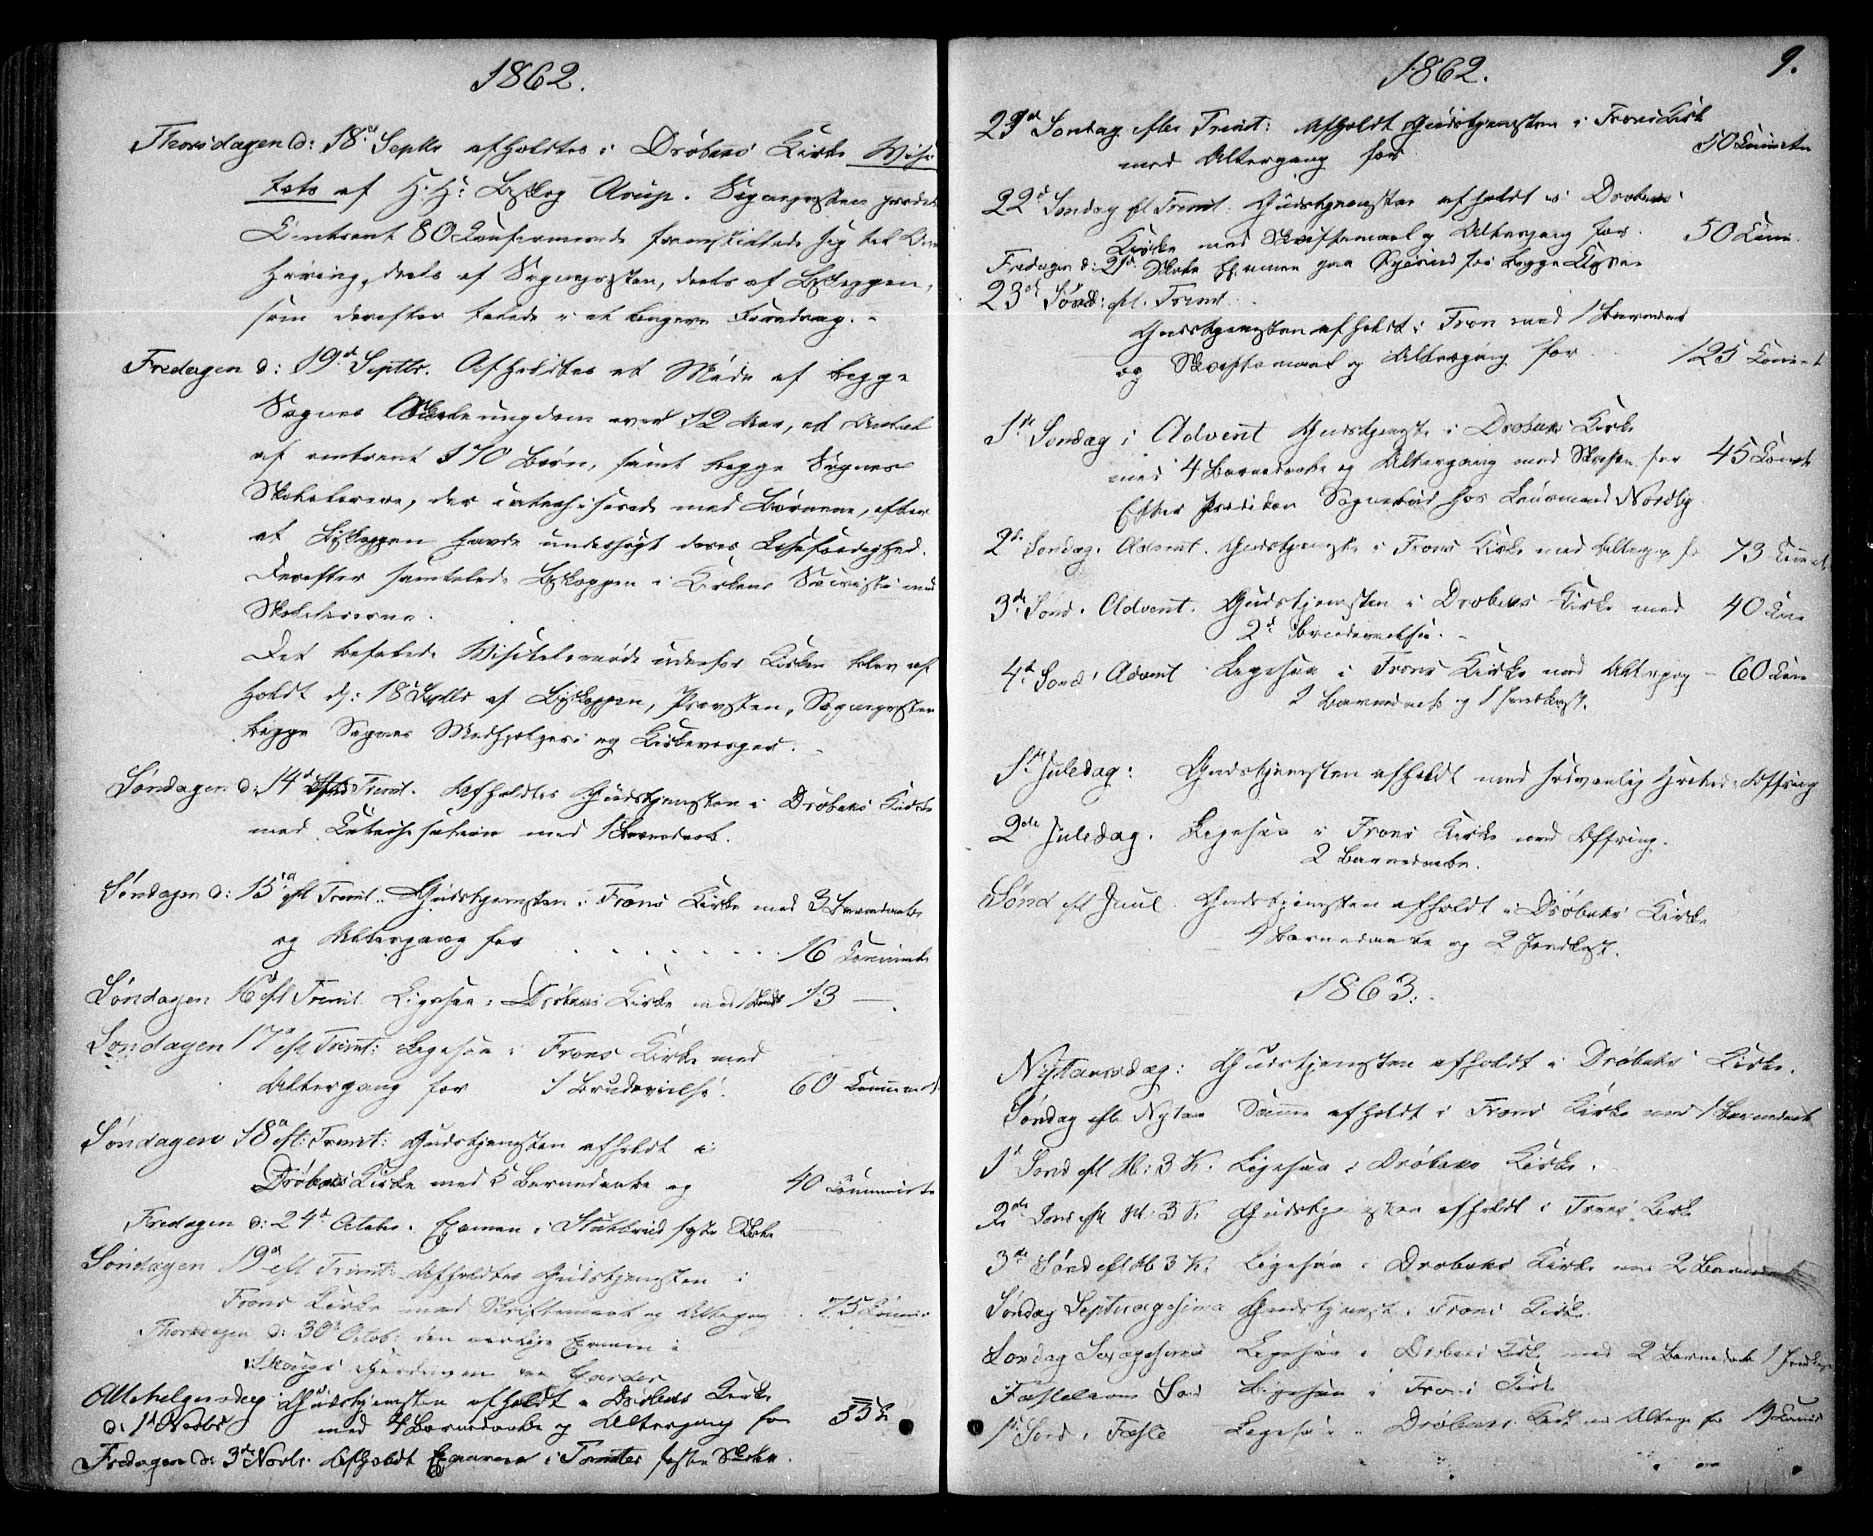 1862.
Thorsdagen d: 18de Septbr afholdtes i Drøbaks Kirke Visi-
tats af H. Hr Biskop Arup. Sognepresten prædik.
Omtrent 80 Confirmerede fremstillede sig til Over-
høring, deels af Sognepresten, deels af Biskoppen,
som derefter talede i et længere Foredrag. -
Fredagen d: 19de Septbr. Afholdtes et Møde af begge
Sognes Skoleungdom over 12 Aar, et Antal
af omtrent 170 Børn, samt begge Sognes
Skolelærere, der catechiserede med Børnene, efter
at Biskoppen havde undersøgt deres Læsefærdighed.
Derefter samtalede Biskoppen i Kirkens Sacristi med
Skolelærerne.
Det befalede Visitatsmøde udenfor Kirken blev af-
holdt d: 18 Septbr af Biskoppen, Provsten, Sognepresten
begge Sognes Medhjelpere og Kirkeverger. -
Søndagen d: 14de efter Trinit. Afholdtes Gudstjenesten i Drøbaks Kirke
med Catechisation med 1 Barnedaab.
Søndagen d: 15de eft Trinit. Gudstjenesten i Frons Kirke med 3 Barnedaabe
og Altergang for . . . . . . . 16 Communic
Søndagen 16de eft Trinit. Ligesaa i Drøbaks Kirke med 13 —
Søndagen 17de eft Trinit: Ligesaa i Frons Kirke med
Altergang for 1 Brudevielse. 60 Communic
Søndagen 18de eft: Trinit: Gudstjenesten afholdt i
Drøbaks Kirke med 5 Barnedaabe og 40 Communic
Fredagen d: 24de October. Examen i faste Skole
Søndagen 19de eft Trinit: Afholdtes Gudstjenesten i
Frons Kirke med Skriftemaal og Altergang . 75 Commun
Thorsdagen d: 30te Octob: den Examen i
Allehelgensdag Gudstjenesten afholdt i Drøbaks Kirke
d: 1ste Novbr med 4 Barnedaabe og Altergang for 55 C
Fredagen d: 3de Novbr. Afholdt Examen i faste Skole.
1862. 9.
Søndag efter Trinit: Afholdt Gudstjenesten i Frons Kirke
med Altergang for 50 Communic
22de Søndag eft Trinit. Gudstjenesten afholdt i Drøbaks
Kirke med Skriftemaal og Altergang for. 50 Comm.
Fredagen d: 21de Skole Examen paa for begge Klasser
23de Sønd: eft. Trinit.
Gudstjenesten afholdt i Fron med 1 Barnedaab
og Skriftemaal og Altergang for 125 Communic
1ste Søndag i Advent Gudstjeneste i Drøbaks Kirke
med 4 Barnedaabe og Altergang med for 45 Comm
Efter Prædiken Sognebud hos Lensmand Nordby
2de Søndag. Advent. Gudstjeneste i Frons Kirke med Alterg for 73 Comm
3de Sønd. Advent. Gudstjenesten i Drøbaks Kirke med 40 Comm
2de Brudevielse. -
4de Sønd. Advent Ligesaa i Frons Kirke med Alterg — 60 Comm
2 Barnedaab og 1 Jordkast.
1ste Juledag: Gudstjenesten afholdt med Offring
2den Juledag. Ligesaa i Frons Kirke med Offring.
2 Barnedaabe.
Sønd eft Juul Gudstjenesten afholdt i Drøbaks Kirke
4 Barnedaabe og 2 Jordkast.
1863.
Nytaarsdag: Gudstjenesten afholdt i Drøbaks Kirke.
Søndag eft Nytaar Samme afholdt i Frons Kirke med 1 Barnedaab
1ste Sønd eft H: 3 K. Ligesaa i Drøbaks Kirke.
2den Sønd eft H: 3 K. Gudstjenesten afholdt i Frons Kirke
3de Sønd eft H 3 K. Ligesaa i Drøbaks Kirke med 2 Barnedaab
Søndag Septuagesima Gudstjenest i Frons Kirke
Søndag Sexagesima Ligesaa i Drøbaks Kirke med 2 Barnedaab 1 Jordkast
Fastelavns Sønd Ligesaa i Frons Kirke
1ste Sønd i Faste Ligesaa i Drøbaks Kirke med Alterg for 19 Comm